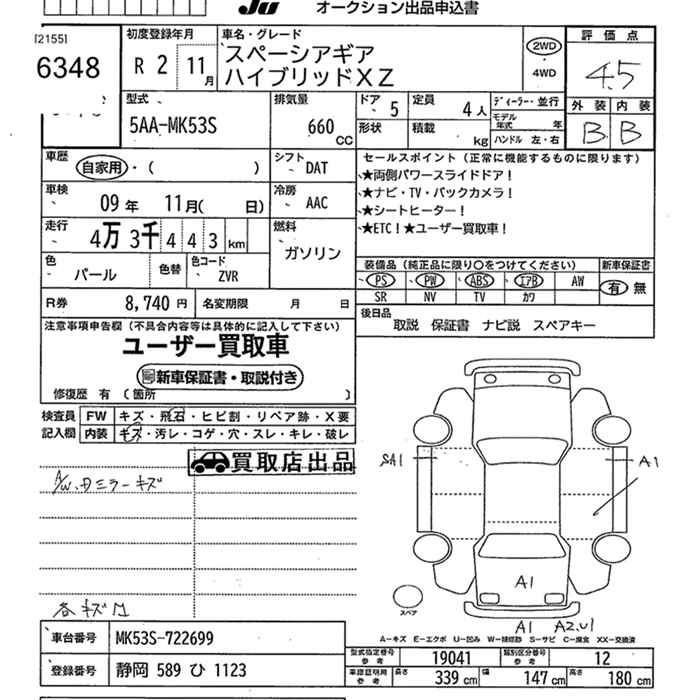 Ju オークション出品申込書
[2155]
6348
初度登録年月
R 2 11月
車名・グレード
スペーシアギア
ハイブリッドXZ
2WD
・
4WD
評価点
4.5
外装 内装
B B
型式
5AA-MK53S
排気量
660 CC
ドア 5
定員 4人
ディーラー・並行
形状
積載 kg
モデル年式 年
ハンドル 左・右
車歴
自家用・( )
シフト DAT
車検
09年 11月( 日)
冷房 AAC
走行
4万 3千 4 4 3 km
燃料
ガソリン
色
パール
色替
色コード
ZVR
R券 8,740円
名変期限 月 日
セールスポイント(正常に機能するものに限ります)
★両側パワースライドドア!
★ナビ・TV・バックカメラ!
★シートヒーター!
★ETC!★ユーザー買取車!
装備品(純正品に限り○をつけてください)
新車保証書
PS PW ABS エアB AW
SR NV TV カワ
有 無
後日品
取説 保証書 ナビ説 スペアキー
注意事項申告欄(不具合内容等は具体的に記入して下さい)
ユーザー買取車
新車保証書・取説付き
修復歴 有 (箇所 )
検査員 FW キズ・飛石・ヒビ割・リペア跡・X要
記入欄 内装 キズ・汚レ・コゲ・穴・スレ・キレ・破レ
買取店出品
A/W、日ミラーキズ
各キズ凹
SA1
A1
A1
スペア
A1 A2,U1
A-キズ E-エクボ U-凹み W-補修跡 S-サビ C-腐食 XX-交換済
車台番号 MK53S-722699
登録番号 静岡 589 ひ 1123
型式指定番号 参考 19041
類別区分番号 参考 12
車検証明用 参考 長さ 339cm 幅 147cm 高さ 180cm